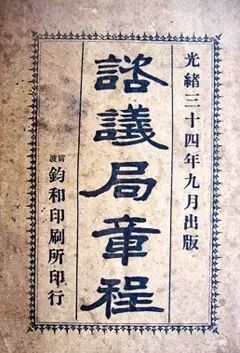 光緒三十四年九月出版
諮議局章程
寧波
鈞和印刷所印行